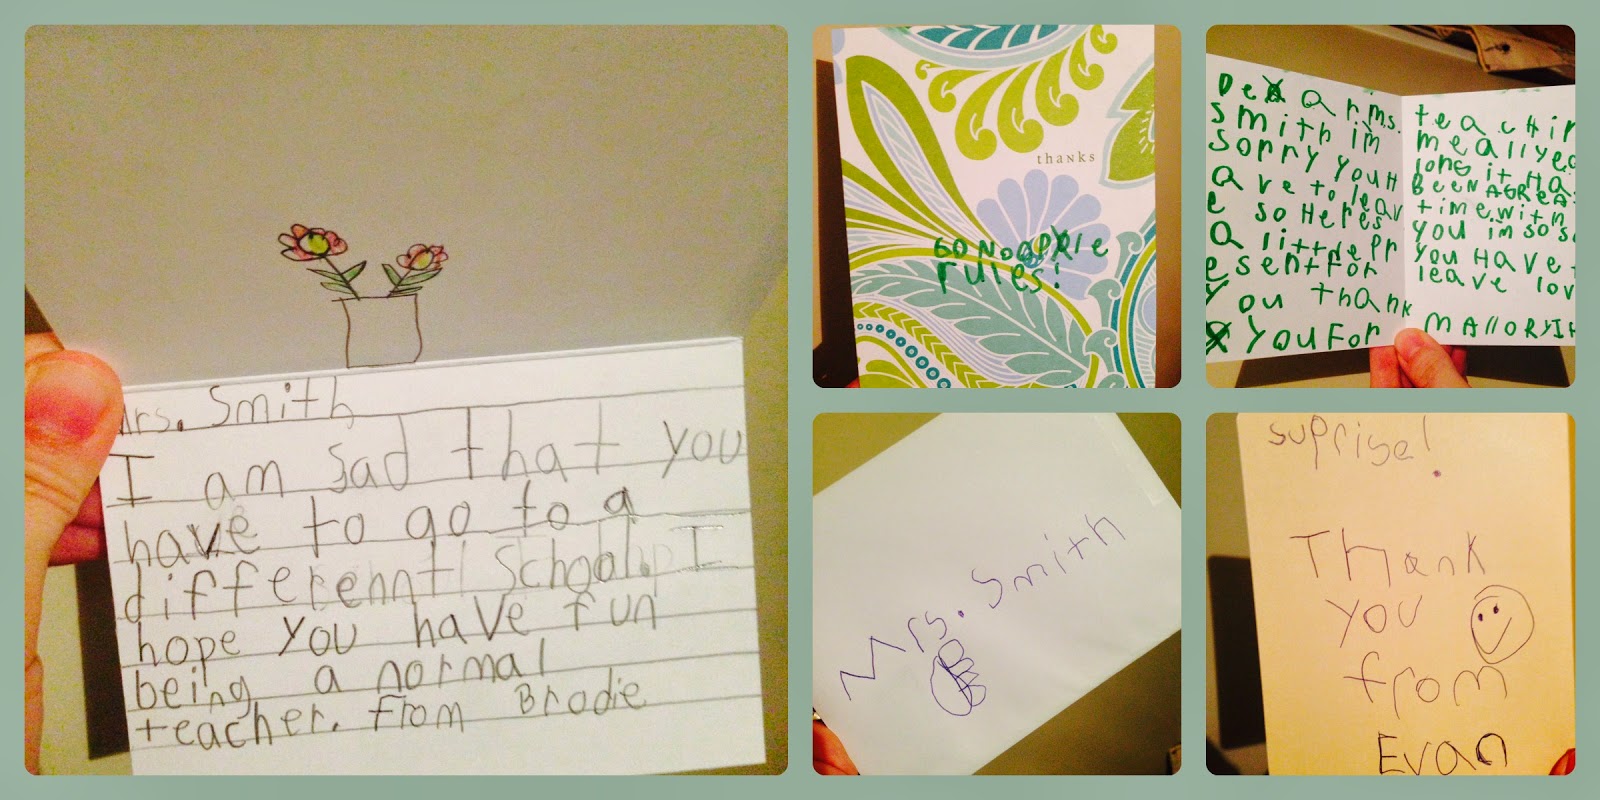 Mrs. Smith
I am sad that you
have to go to a
differennt school. I
hope you have fun
being a normal
teacher. From Brodie
thanks
GO NOODle
rules!
Dear ms.
Smith im
sorry you H
ave to leav
e so Heres
a little pr
esent for
you thank
you for
teaching
me all year
long it Ha
BEEN A GREA
time with
you im so s
you Have
leave lov
MALLORY
Mrs. Smith
suprise!
Thank
you
from
Evan